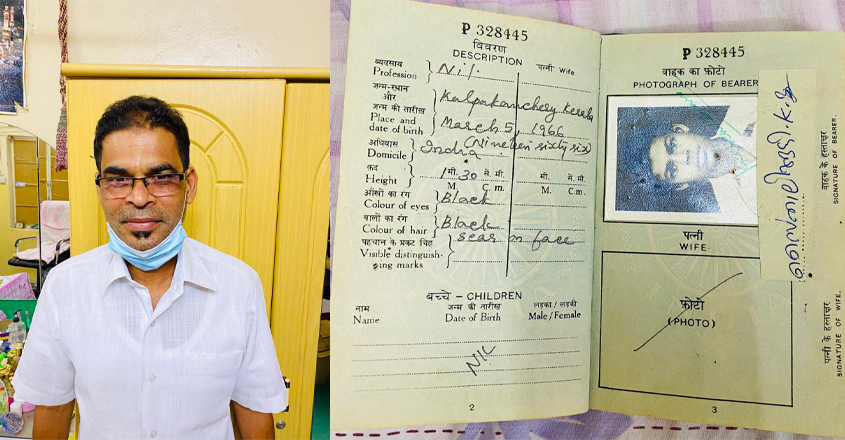 P 328445
विवरण
DESCRIPTION
पत्नी Wife
व्यवसाय
Profession
Nil.
जन्म-स्थान
और
जन्म की तारीख
Place and
date of birth
Kalpakanchery Kerala
March 5, 1966
(Nineteen sixty six)
अधिवास
Domicile
India
कद
Height
1 मी. 30 से. मी.
M. C.m.
मी. से. मी.
M. C.m.
आँखों का रंग
Colour of eyes
Black
बालों का रंग
Colour of hair
Black
पहचान के प्रकट चिह्न
Visible distinguish-
ing marks
scar on face
बच्चे – CHILDREN
नाम
Name
जन्म की तारीख
Date of Birth
लड़का / लड़की
Male / Female
NIL
2
P 328445
वाहक का फ़ोटो
PHOTOGRAPH OF BEARER
पत्नी
WIFE
फ़ोटो
(PHOTO)
3
वाहक के हस्ताक्षर
SIGNATURE OF BEARER.
पत्नी के हस्ताक्षर
SIGNATURE OF WIFE.